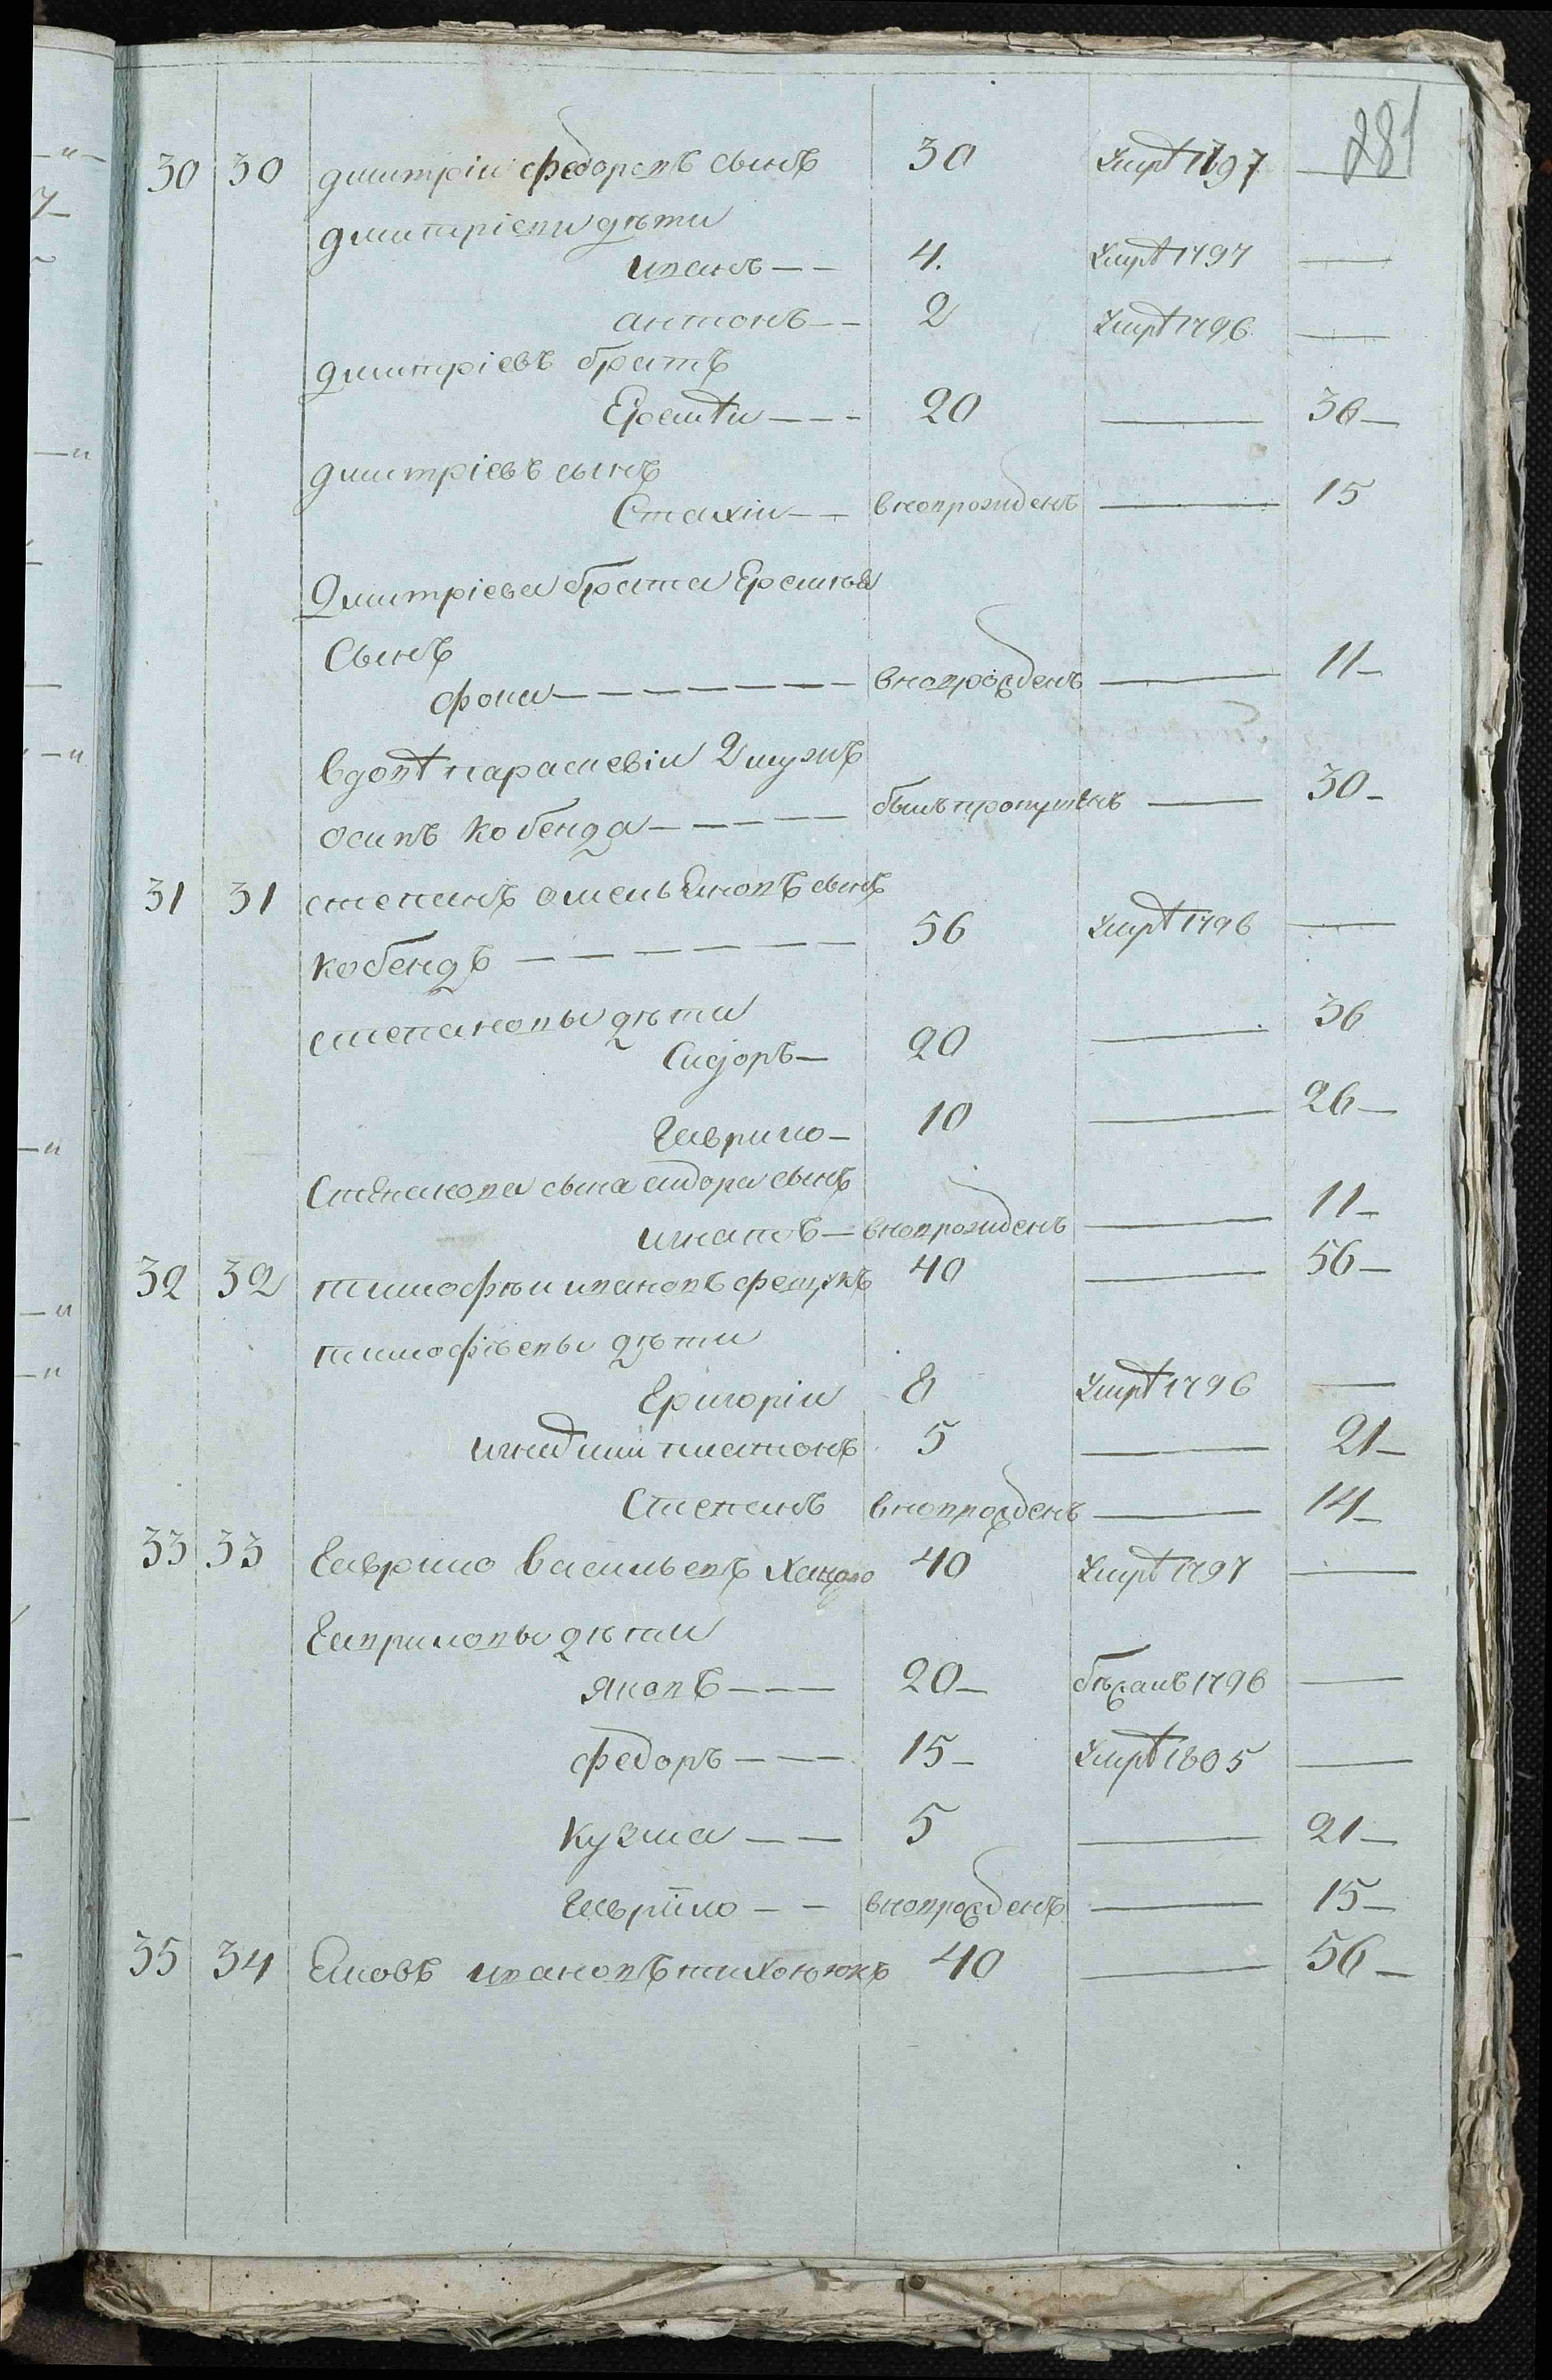 281
30 30 дмитріи федоровъ сынъ 30 умре 1797 —
дмитріеви дѣти
иванъ — — 4. умре 1797 —
антонъ — — 2 умре 1796 —
дмитріевъ братъ
Ерем — — — 20 — 36 —
дмитріевъ сынъ
Стахіи — — вновь рожденъ — 15
Дмитріева брата
Сынъ
фома — — — — — — вновь рожденъ — 11 —
вдовѣ параскевіи 2 мужъ
осипъ кобенда — — — — былъ пропущенъ — 30 —
31 31 степанъ омельяновъ сынъ
кобендъ — — — — — — 56 умре 1796 —
степановы дѣти
Сидоръ — 20 — 36
Гаврило — 10 — 26 —
Степанова сына сидора сынъ
игнатъ — вновь рожденъ — 11 —
32 32 тимофѣи ивановъ фещукъ 40 — 56 —
тимофѣевы дѣти
Григоріи 8 умре 1796 —
платонъ 5 — 21 —
Степанъ вновь рожденъ — 14 —
33 33 Гаврило васильевъ 40 умре 1797 —
Гавриловы дѣти
яковъ — — — 20 — бѣжалъ 1796 —
федоръ — — — 15 — умре 1805 —
кузма — — 5 — 21 —
Гаврііло — — вновь рожденъ — 15 —
35 34 ивановъ 40 — 56 —